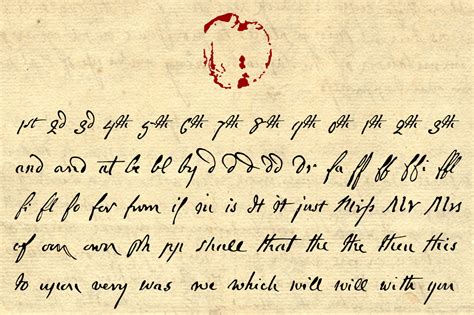 1st 2d 3d 4th 5th 6th 7th 8th 9th 0th 1th 2th 3th
and and at be bl by d d d dd Dr fa ff ff ffi ffl
fi fl fo for from if in is It it just Miſs Mr Mrs
of on own ph pp shall that the the then this
to upon very was we which will will with you